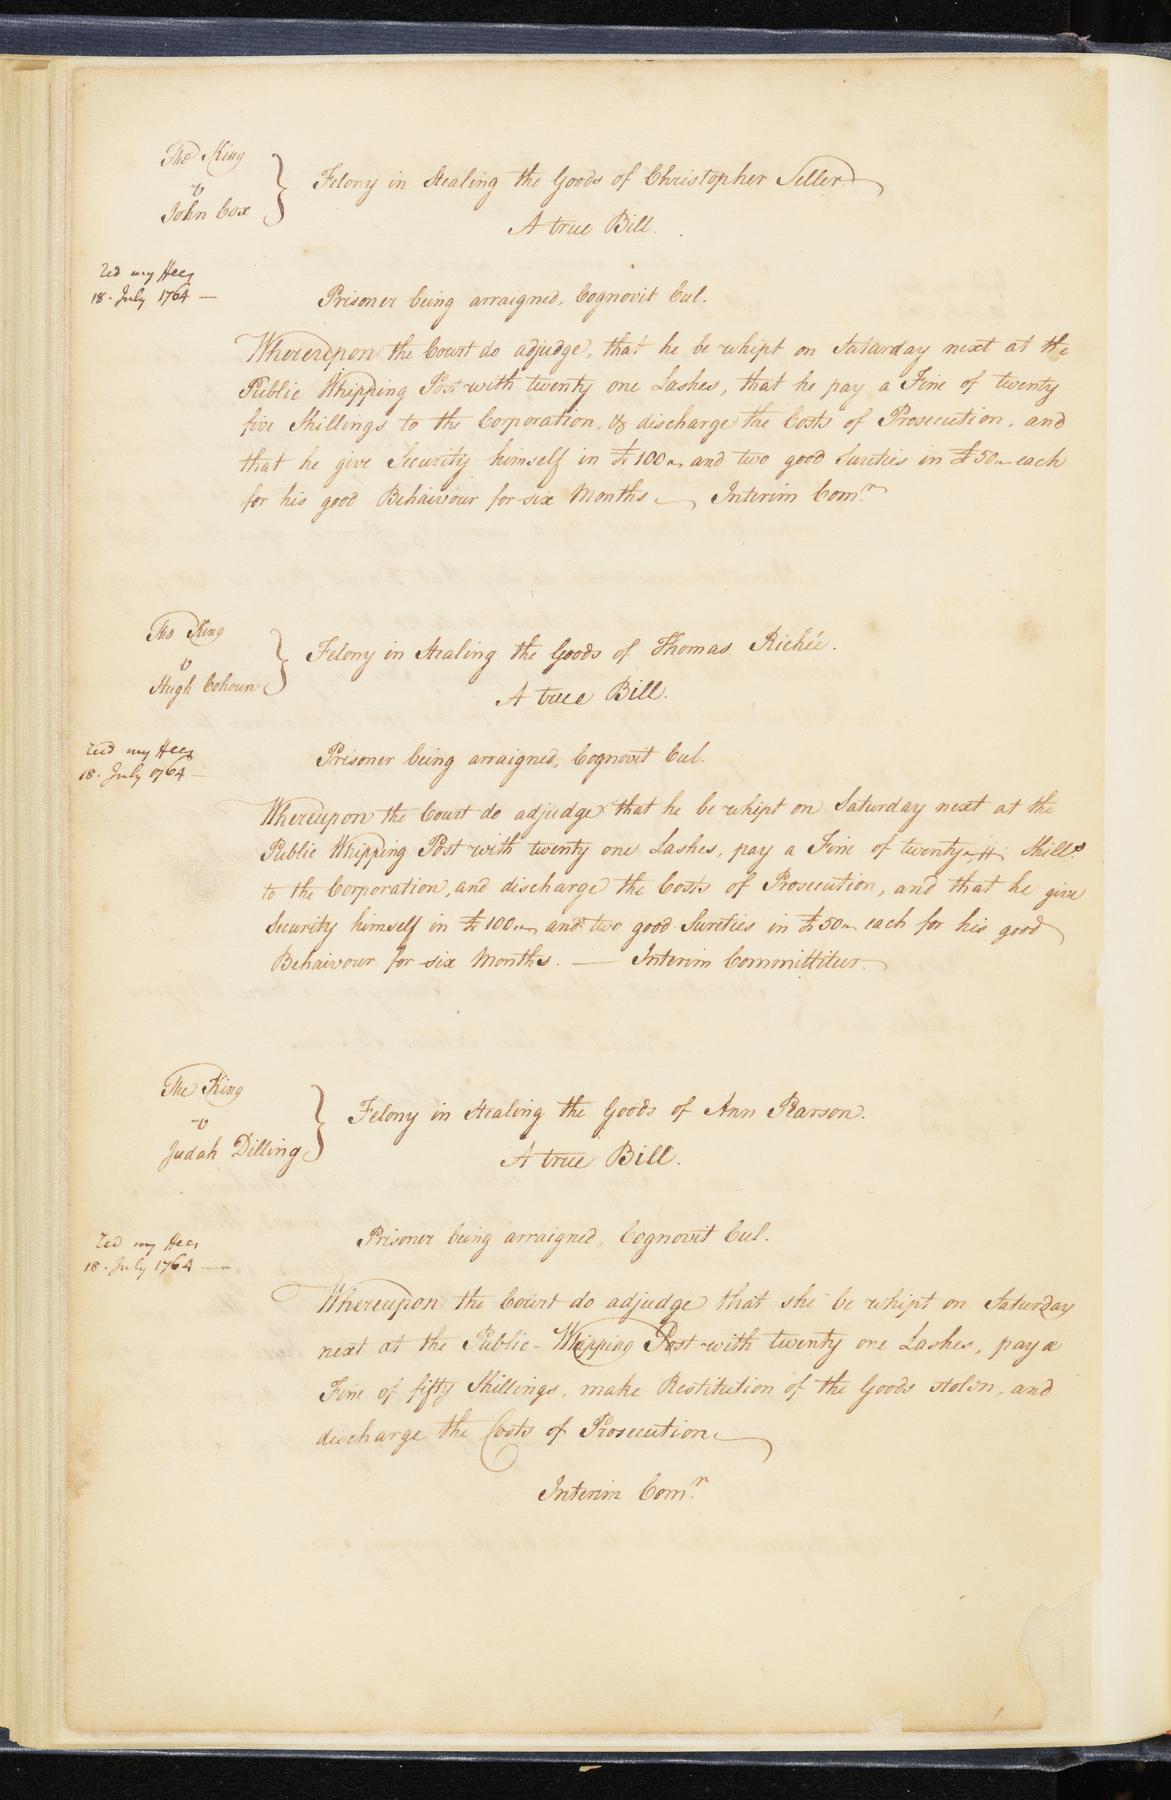 The King
v
John Cox
Felony in Stealing the Goods of Christopher Seller.
A true Bill.
Red my Fees
18. July 1764 —
Prisoner being arraigned, Cognovit Cul.
Whereupon the Court do adjudge, that he be whipt on Saturday next at the
Public Whipping Post with twenty one Lashes, that he pay a Fine of twenty
five Shillings to the Corporation, & discharge the Costs of Prosecution, and
that he give Security himself in £100 and two good Sureties in £50 each
for his good Behaivour for six Months — Interim Comr.
The King
v
Hugh Cohoun
Felony in Stealing the Goods of Thomas Richée.
A true Bill.
Recd my Fees
18. July 1764 —
Prisoner being arraigned, Cognovit Cul.
Whereupon the Court do adjudge that he be whipt on Saturday next at the
Public Whipping Post with twenty one Lashes, pay a Fine of twenty Shills.
to the Corporation, and discharge the Costs of Prosecution, and that he give
Security himself in £100 and two good Sureties in £50 each for his good
Behaivour for six Months. — Interim Committitur.
The King
v
Judah Dilling
Felony in Stealing the Goods of Ann Pearson.
A true Bill.
Red my Fees
18. July 1764 —
Prisoner being arraigned, Cognovit Cul.
Whereupon the Court do adjudge that she be whipt on Saturday
next at the Public Whipping Post with twenty one Lashes, pay a
Fine of fifty Shillings, make Restitution of the Goods stolen, and
discharge the Costs of Prosecution.
Interim Comr.